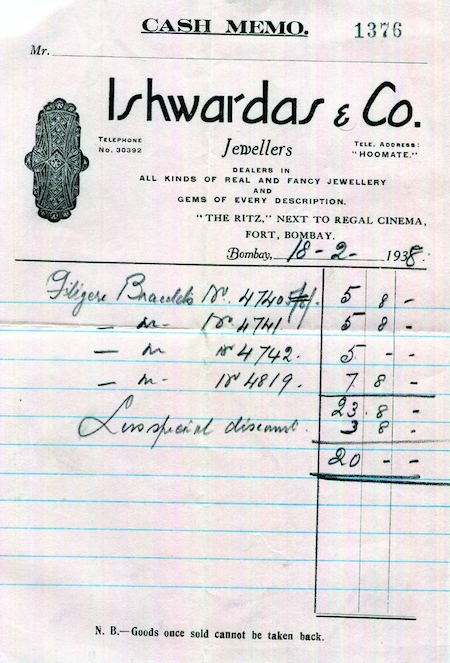 CASH MEMO. 1376
Mr.
Ishwardas & Co.
TELEPHONE No. 30392
Jewellers
TELE. ADDRESS: "HOOMATE."
DEALERS IN
ALL KINDS OF REAL AND FANCY JEWELLERY
AND
GEMS OF EVERY DESCRIPTION.
"THE RITZ," NEXT TO REGAL CINEMA,
FORT, BOMBAY.
Bombay, 18-2- 1938.
Filigere Bracelets No. 4740 5 8 -
- " - No. 4741 5 8 -
- " - No 4742. 5 - -
- " - No 4819. 7 8 -
23 . 8 -
Less special discount. 3 8 -
20 - -
N. B.—Goods once sold cannot be taken back.